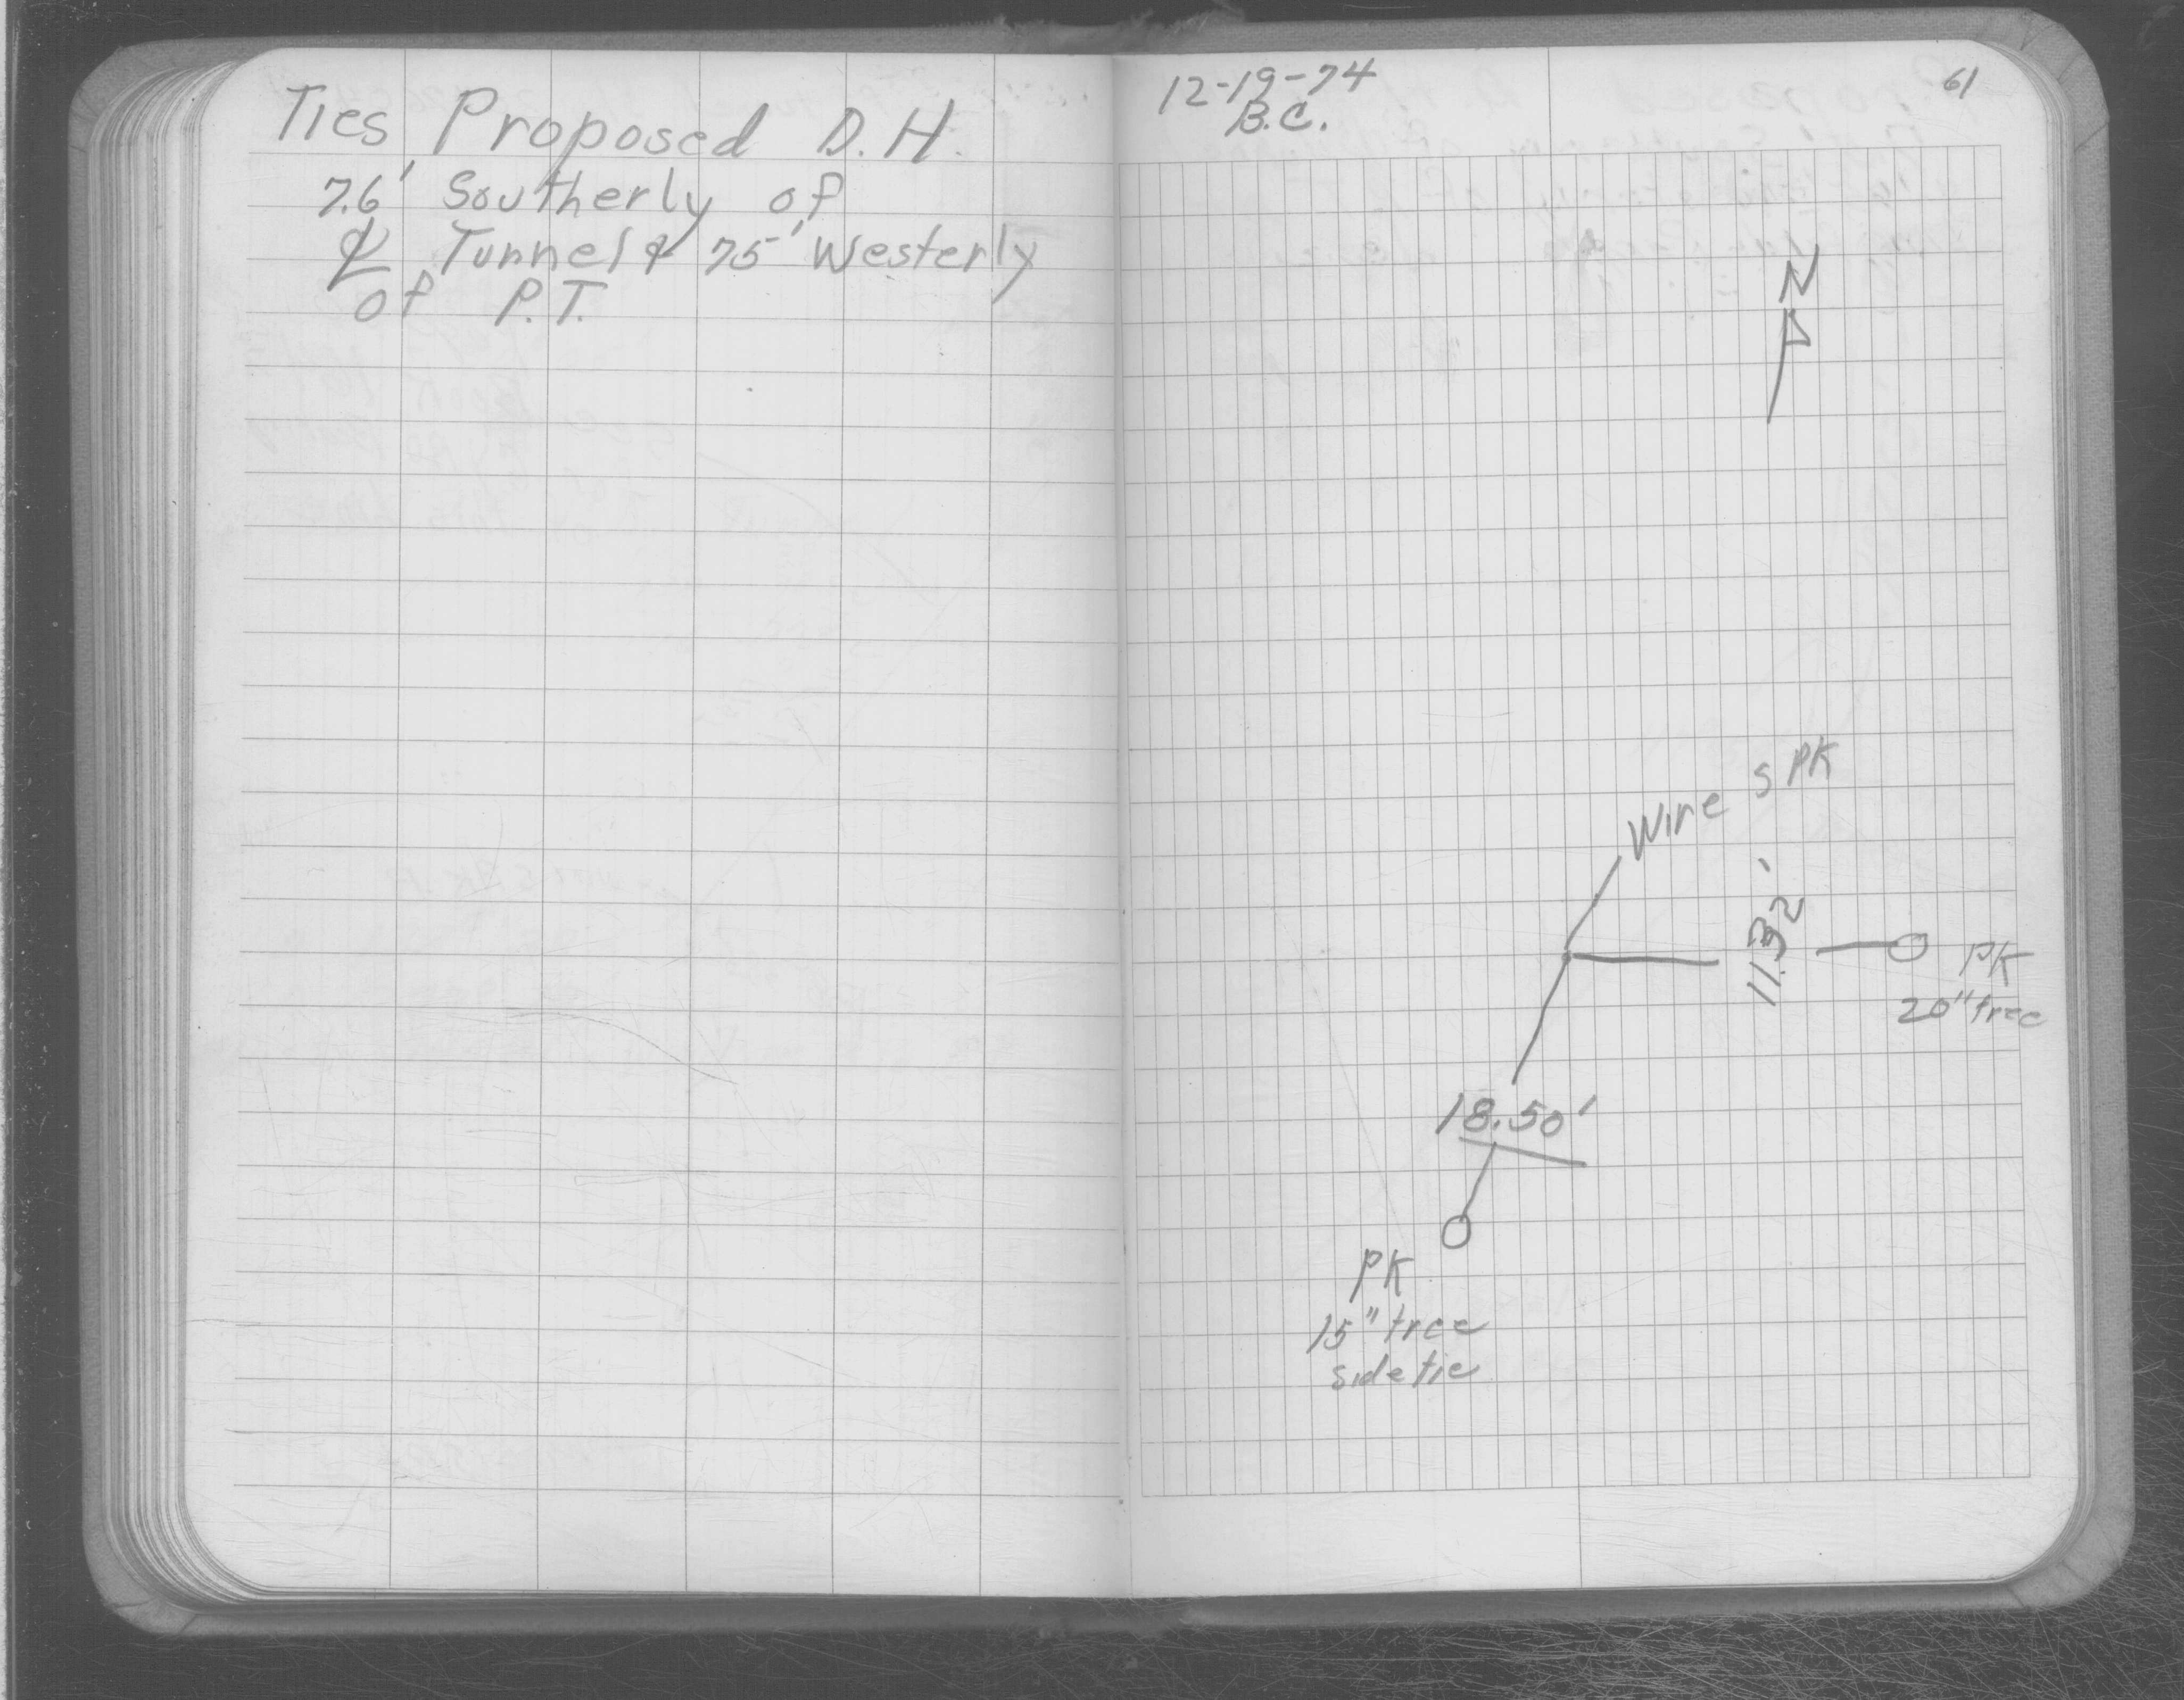 Ties Proposed D.H.
7.6' Southerly of
℄ Tunnel & 75' Westerly
of P.T.
12-19-74
B.C.
61
N
Wire SPK
11.32'
PK
20" tree
18.50'
PK
15" tree
side tie